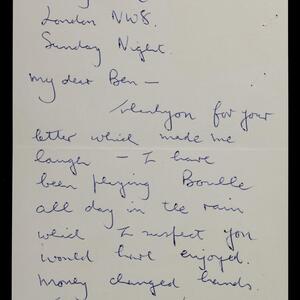 London NW8.
Sunday Night.
My dear Ben —
Thankyou for your
letter which made me
laugh — I have
been playing Boulle
all day in the rain
which I suspect you
would have enjoyed.
Money changed hands.